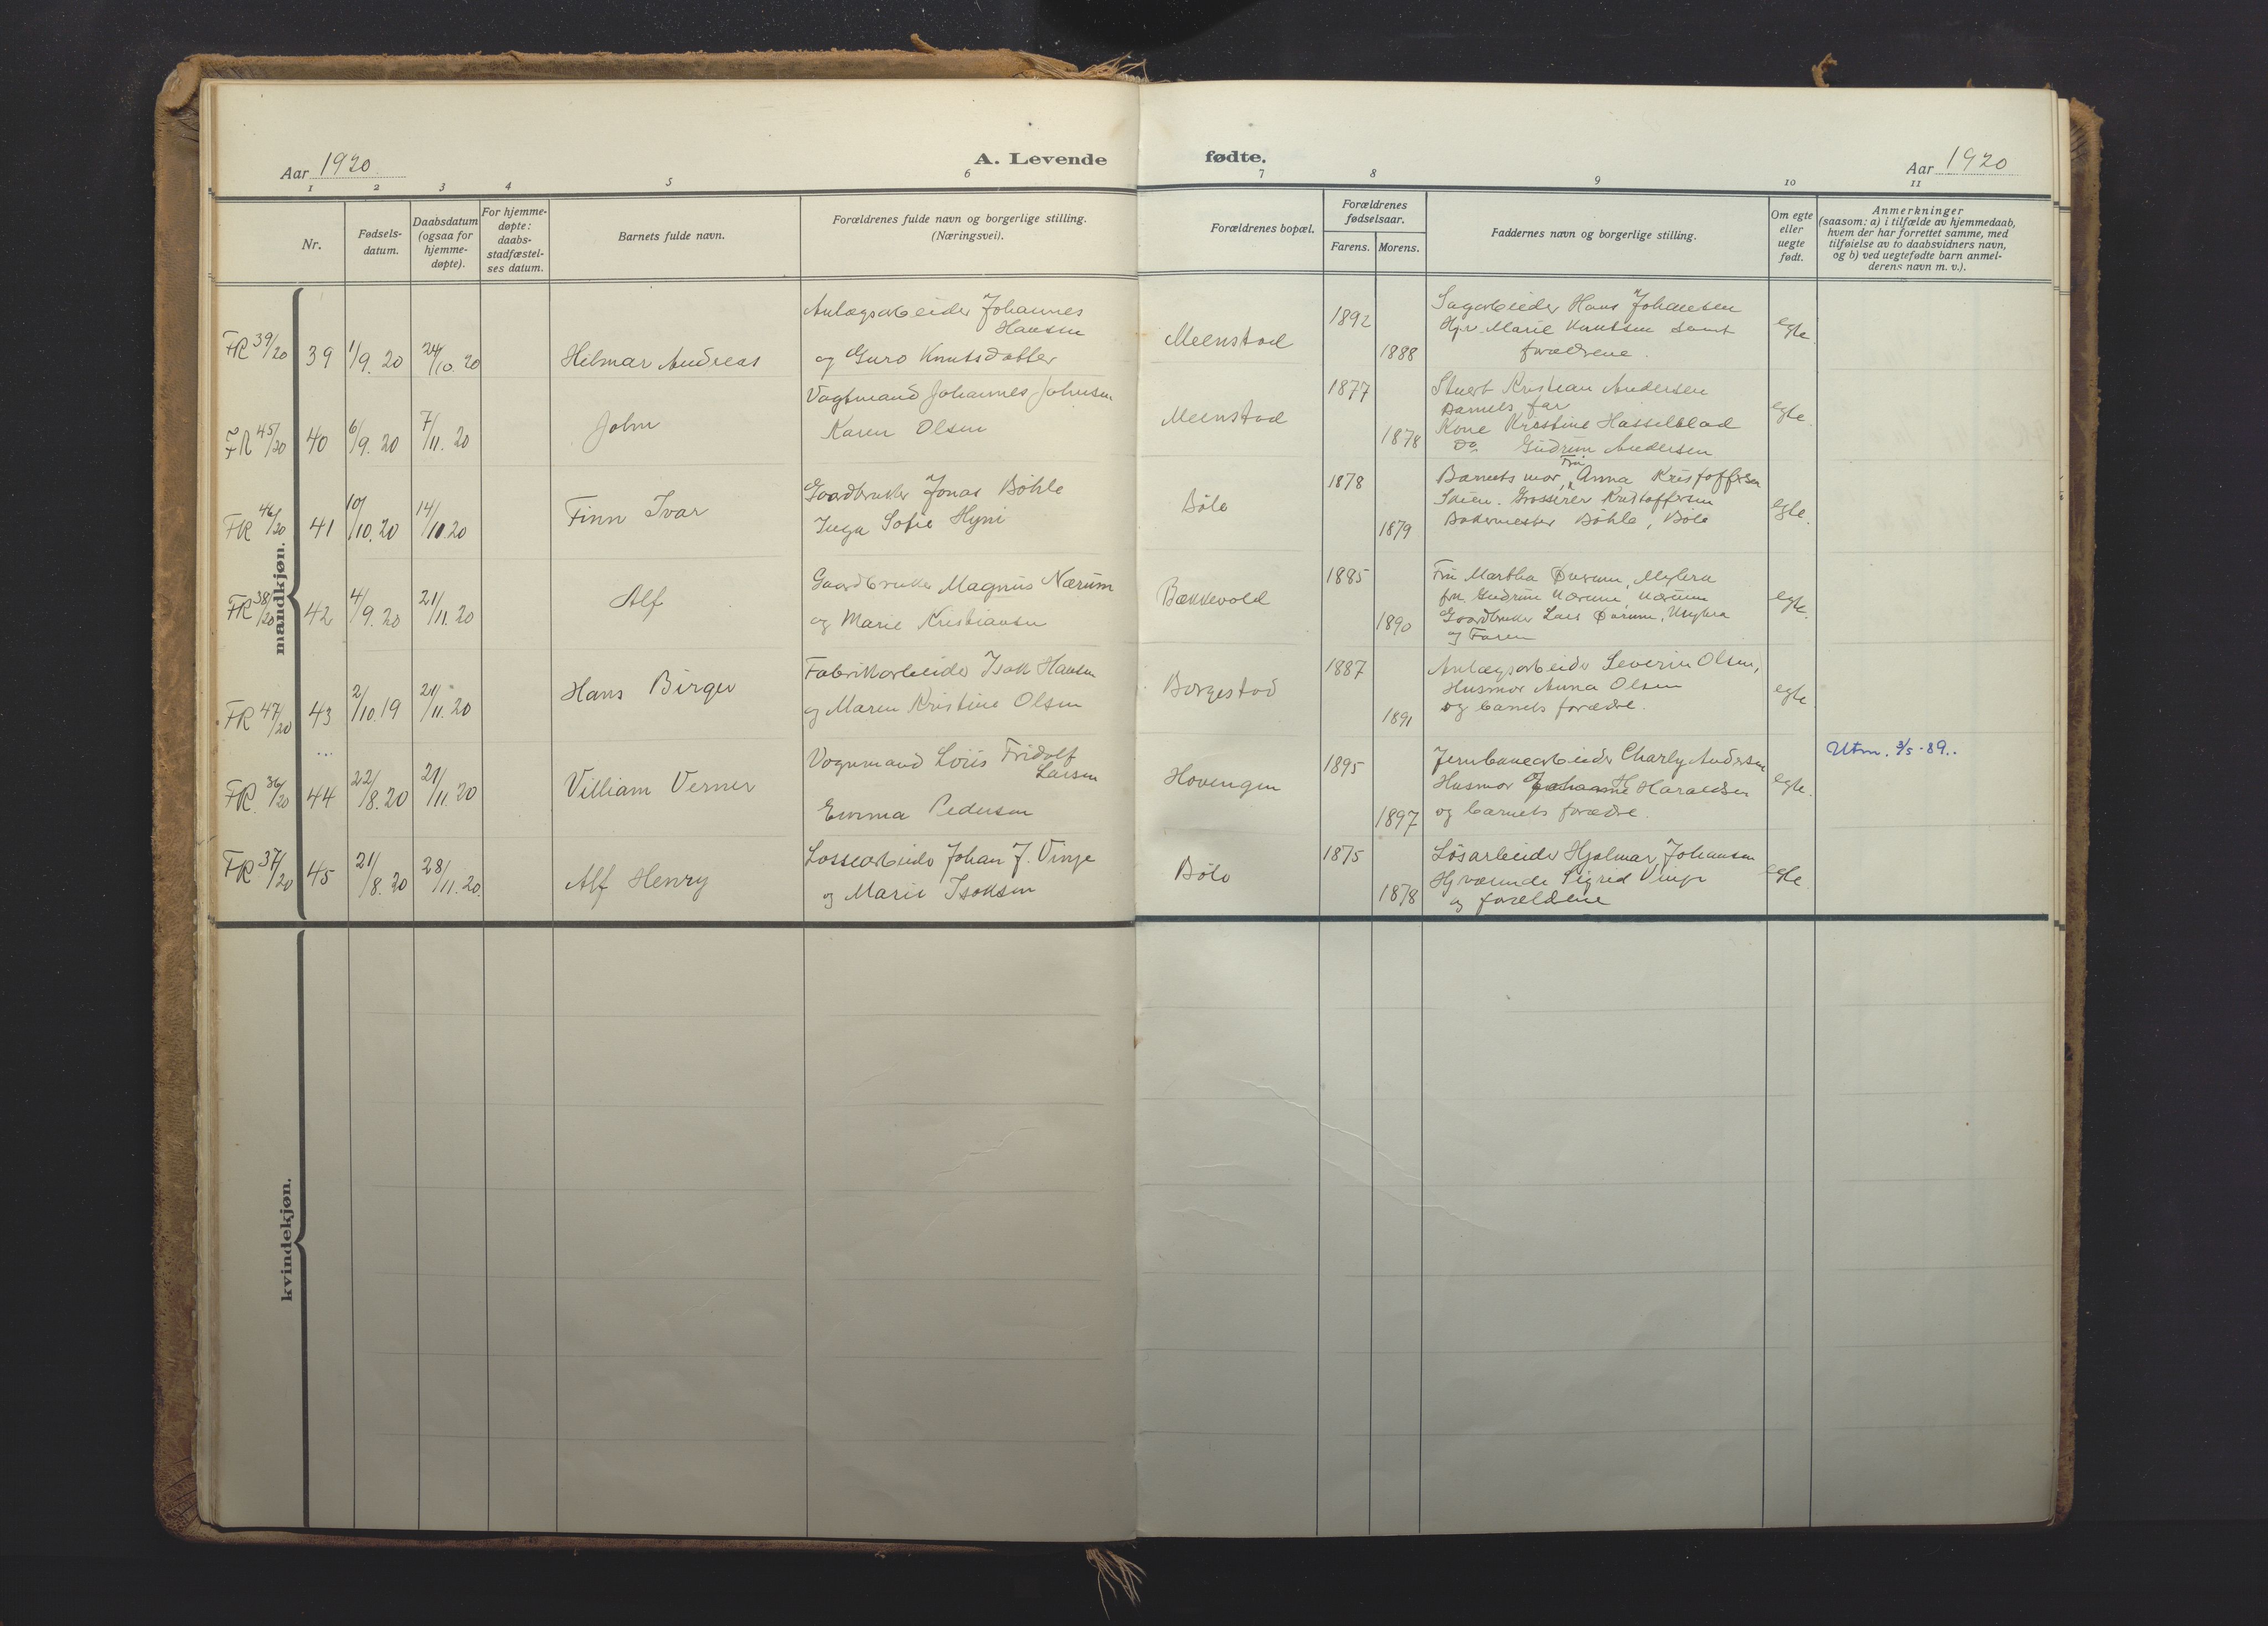 Aar 1920
A. Levende fødte.
Aar 1920
1 2 3 4 5 6 7 8 9 10 11
Nr.
Fødsels-
datum.
Daabsdatum
(ogsaa for
hjemme-
døpte).
For hjemme-
døpte:
daabs-
stadfæstel-
ses datum.
Barnets fulde navn.
Forældrenes fulde navn og borgerlige stilling.
(Næringsvei).
Forældrenes bopæl.
Forældrenes
fødselsaar.
Farens. Morens.
Faddernes navn og borgerlige stilling.
Om egte
eller
uegte
født.
Anmerkninger
(saasom: a) i tilfælde av hjemmedaab,
hvem der har forrettet samme, med
tilføielse av to daabsvidners navn,
og b) ved uegtefødte barn anmel-
derens navn m. v.).
mandkjøn.
FR 39/20 39 1/9. 20 24/10. 20
Hilmar Andreas
Anlægsarbeider Johannes
Hansen
og Guro Knutsdatter
Meenstad
1892
1888
Sagarbeider Hans Johansen
Hjv. Marie Knutsen samt
forældrene.
egte.
FR 45/20 40 6/9. 20 7/11. 20
John
Vagtmand Johannes Johnsen
Karen Olsen
Meenstad
1877
1878
Stuert Kristian Andersen
Barnets far
Kone Kristine Hasselblad
Do Gudrun Andersen
egte.
FR 46/20 41 10/10. 20 14/11. 20
Finn Ivar
Gaardbruker Jonas Böhle
Inga Sofie Hyni
Böle
1878
1879
Barnets mor, Fru Anna Kristoffersen
Skien. Grosserer Kristoffersen
Bakermester Böhle, Böle
egte.
FR 38/20 42 4/9. 20 21/11. 20
Alf
Gaardbruker Magnus Nærum
og Marie Kristiansen
Bækkevold
1885
1890
Fru Martha
frk. Gudrun Nærum, Nærum
Gaardbruker Lars
og Faren
egte.
FR 47/20 43 2/10. 19 21/11. 20
...
Hans Birger
Fabrikarbeider Isak Hansen
og Maren Kristine Olsen
Borgestad
1887
1891
Anlægsarbeider Severin Olsen,
Husmor Anna Olsen
og barnets forældre.
egte
FR. 36/20 44 22/8. 20 21/11. 20
Villiam Verner
Vognmand Loüis Fridolf
Larsen
Emma Pedersen
Hovengen
1895
1897
Jernbanearbeider Charly Andersen
Husmor Johanne H. Haraldsen
og barnets forældre.
egte.
Utm. 3/5-89..
FR 37/20 45 21/8. 20 28/11. 20.
Alf Henry
Lossearbeider Johan J. Vinje
og Marie Isaksen
Böle
1875
1878
Løsarbeider Hjalmar Johansen
Hjværende Sigrid Vinje
og foreldrene
egte.
kvindekjøn.